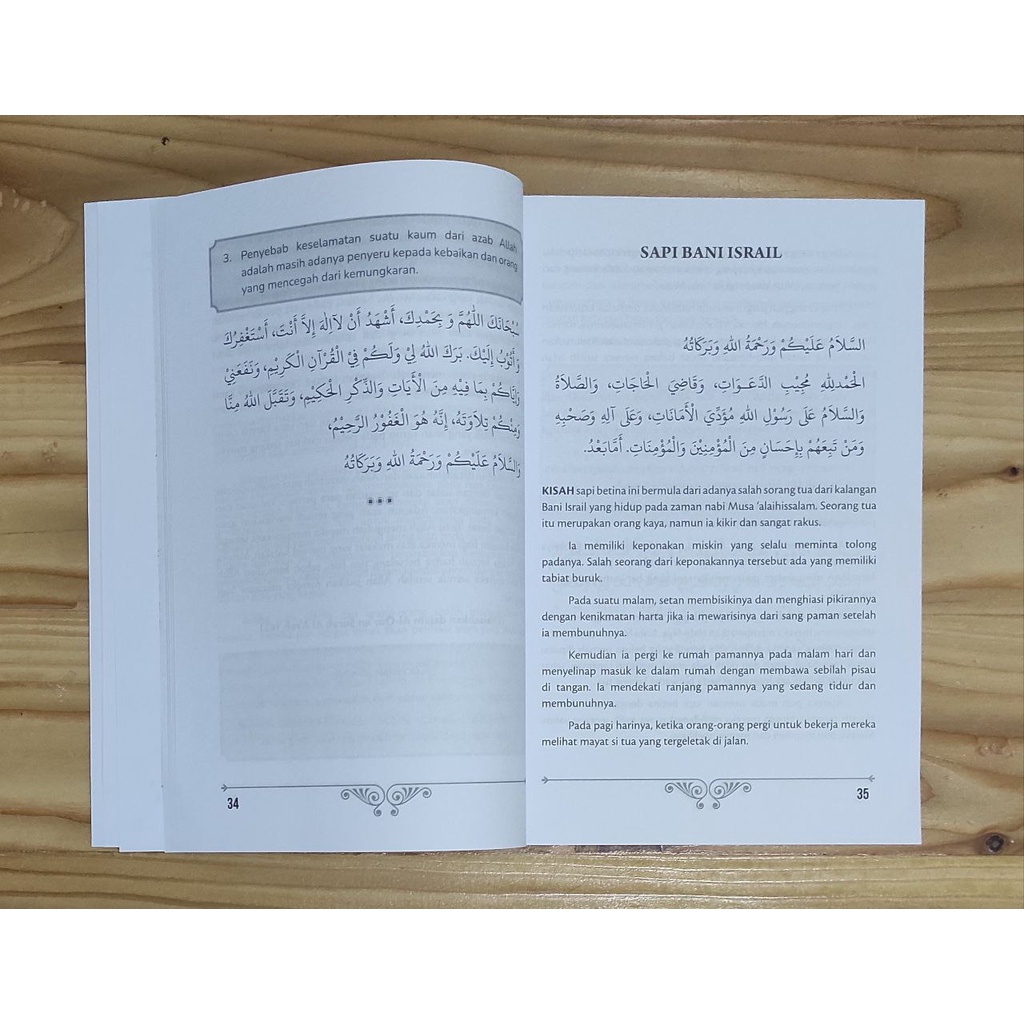 3. Penyebab keselamatan suatu kaum dari azab Allah
adalah masih adanya penyeru kepada kebaikan dan orang
yang mencegah dari kemungkaran.
سُبْحَانَكَ اللّٰهُمَّ وَ بِحَمْدِكَ، أَشْهَدُ أَنْ لاَإِلٰهَ إِلاَّ أَنْتَ، أَسْتَغْفِرُكَ
وَأَتُوْبُ إِلَيْكَ. بَرَكَ اللهُ لِيْ وَلَكُمْ فِيْ الْقُرْآنِ الْكَرِيْمِ، وَنَفَعَنِيْ
وَإِيَّاكُمْ بِمَا فِيْهِ مِنَ الْأَيَاتِ وَالذِّكْرِ الْحَكِيْمِ، وَتَقَبَّلَ اللهُ مِنَّا
وَمِنْكُمْ تِلاَوَتَهُ، إِنَّهُ هُوَ الْغَفُوْرُ الرَّحِيْمُ،
وَالسَّلاَمُ عَلَيْكُمْ وَرَحْمَةُ اللهِ وَبَرَكَاتُهُ
***
34
SAPI BANI ISRAIL
السَّلاَمُ عَلَيْكُمْ وَرَحْمَةُ اللهِ وَبَرَكَاتُهُ
الْحَمْدُلِلهِ مُجِيْبِ الدَّعَـوَاتِ، وَقَاضِيَ الْحَاجَاتِ، وَالصَّلاَةُ
وَالسَّلاَمُ عَلَى رَسُوْلِ اللهِ مُؤَدِّيَ الْأَمَانَاتِ، وَعَلَى آلِهِ وَصَحْبِهِ
وَمَنْ تَبِعَهُمْ بِإِحْسَانٍ مِنَ الْمُؤْمِنِيْنَ وَالْمُؤْمِنَاتِ. أَمَّابَعْدُ.
KISAH sapi betina ini bermula dari adanya salah sorang tua dari kalangan
Bani Israil yang hidup pada zaman nabi Musa 'alaihissalam. Seorang tua
itu merupakan orang kaya, namun ia kikir dan sangat rakus.
Ia memiliki keponakan miskin yang selalu meminta tolong
padanya. Salah seorang dari keponakannya tersebut ada yang memiliki
tabiat buruk.
Pada suatu malam, setan membisikinya dan menghiasi pikirannya
dengan kenikmatan harta jika ia mewarisinya dari sang paman setelah
ia membunuhnya.
Kemudian ia pergi ke rumah pamannya pada malam hari dan
menyelinap masuk ke dalam rumah dengan membawa sebilah pisau
di tangan. Ia mendekati ranjang pamannya yang sedang tidur dan
membunuhnya.
Pada pagi harinya, ketika orang-orang pergi untuk bekerja mereka
melihat mayat si tua yang tergeletak di jalan.
35